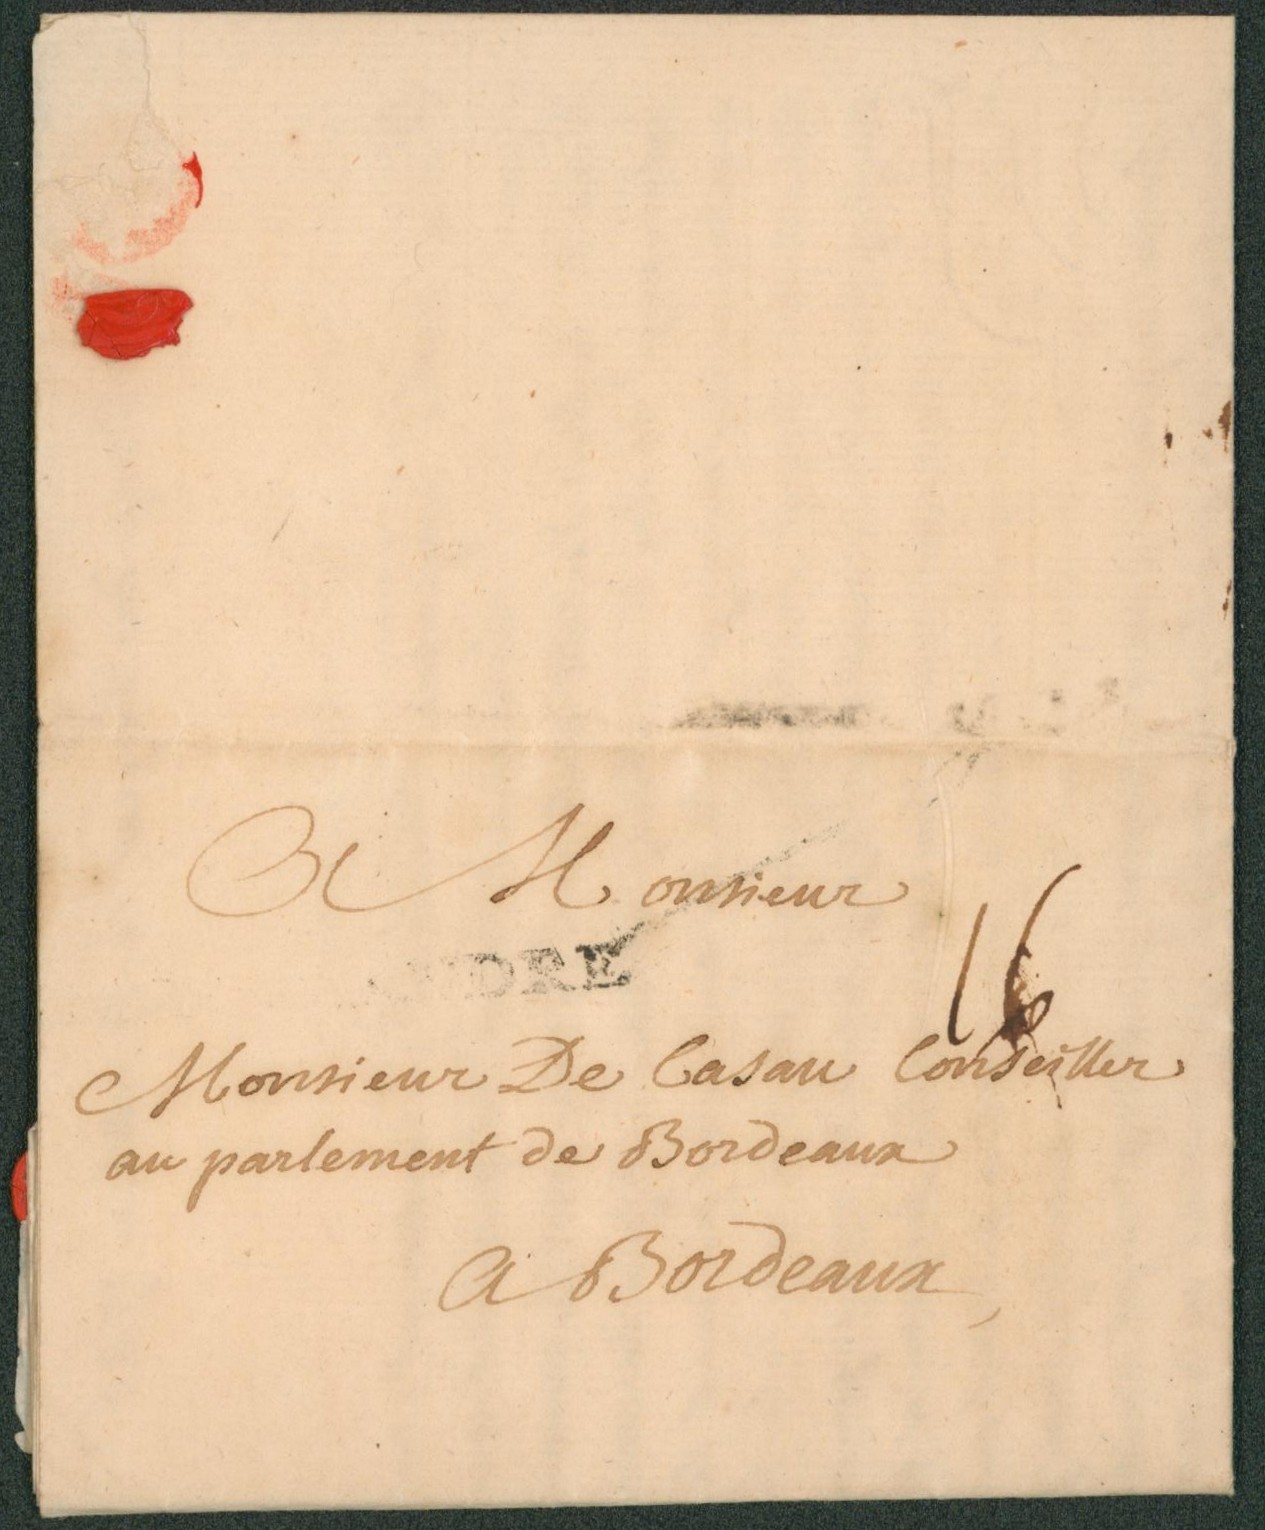 A Monsieur
16
DRE
Monsieur De Casau Conseiller
au parlement de Bordeaux
A Bordeaux